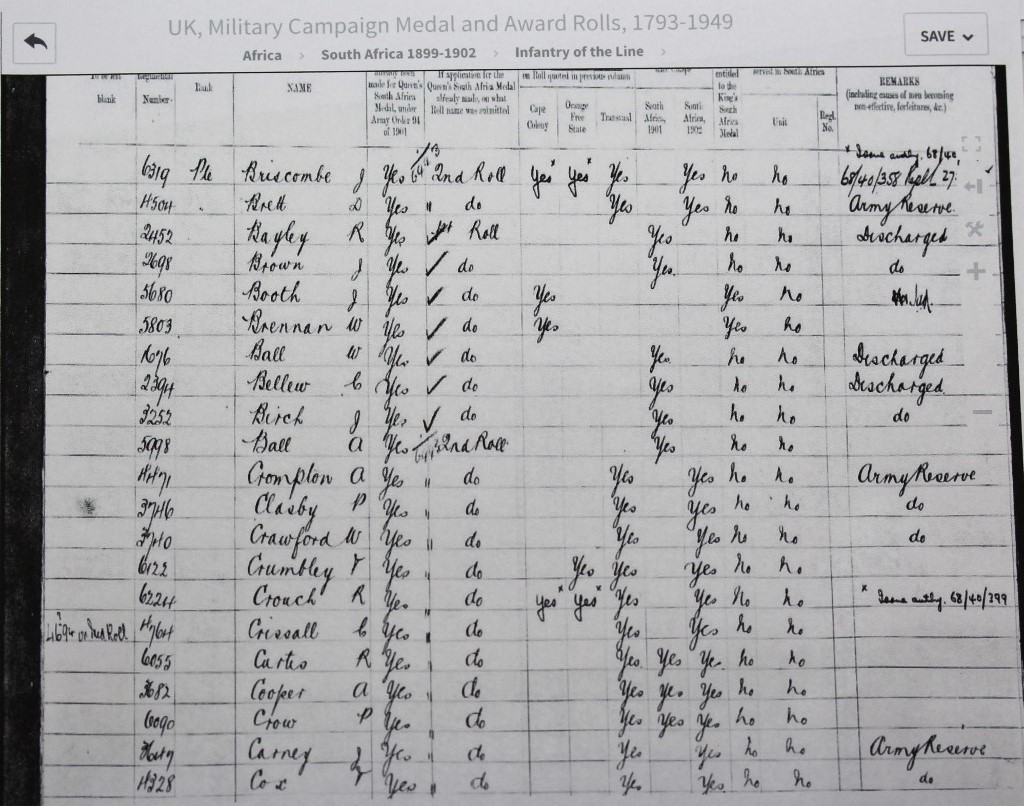 UK, Military Campaign Medal and Award Rolls, 1793-1949
SAVE
Africa > South Africa 1899-1902 > Infantry of the Line >
blank Number. Rank NAME already been made for Queen's South Africa Medal, under Army Order 94 of 1901 If application for the Queen's South Africa Medal already made, on what Roll name was submitted on Roll quoted in previous column Cape Colony Orange Free State Transvaal South Africa, 1901 South Africa, 1902 entitled to the King's South Africa Medal served in South Africa Unit Regl. No. REMARKS (including causes of men becoming non-effective, forfeitures, &c.)
* Same authy. 68/40,
6319 Pte Briscombe J Yes 2nd Roll Yes* Yes* Yes Yes no no 68/40/358 27.
4504 Brett D Yes " do Yes Yes no no Army Reserve.
2452 Bayley R Yes 1st Roll Yes no no Discharged
2698 Brown J Yes ✓ do Yes. no no do
5680 Booth J Yes ✓ do Yes Yes no
5803 Brennan W Yes ✓ do Yes Yes no
1676 Ball W Yes ✓ do Yes no no Discharged
2394 Bellew C Yes ✓ do Yes no no Discharged
3252 Birch J Yes ✓ do Yes no no do
5998 Ball A Yes 2nd Roll Yes no no
4471 Crompton A Yes " do Yes Yes no no Army Reserve
3746 Clasby P Yes " do Yes Yes no no do
3740 Crawford W Yes " do Yes Yes no no do
6122 Crumbley F Yes " do Yes Yes Yes no no
6224 Crouch R Yes " do Yes* Yes* Yes Yes no no * Same authy. 68/40/399
4694 on Roll 4764 Crissall C Yes " do Yes Yes no no
6055 Curtis R Yes " do Yes Yes Yes no no
3682 Cooper A Yes " do Yes Yes Yes no no
6090 Crow P Yes " do Yes Yes Yes no no
Carney J Yes " do Yes Yes no no Army Reserve
4328 Cox F Yes " do Yes Yes no no do